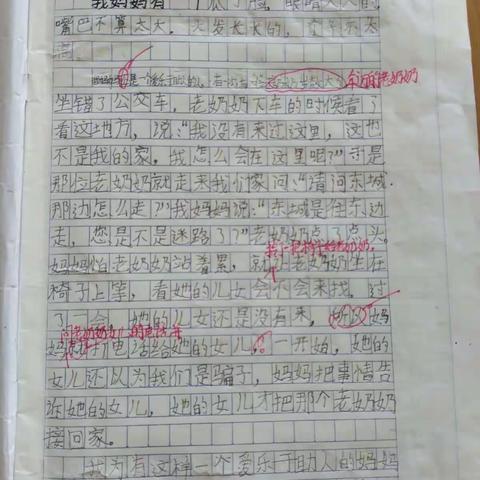 我妈妈有一 瓜子脸，眼睛大大的，
嘴巴不算太大。头发长长的，个子不太
高。
妈妈是一个爱乐于助人的人，有一次
年迈的老奶奶
坐错了公交车，老奶奶下车的时候看了
看这地方，说：“我没有来过这里，这也
不是我的家。我怎么会在这里呢？”于是
那位老奶奶就走来我们家问：“请问东城
那边怎么走？”我妈妈说：“东城是往东边
走，您是不是迷路了？”老奶奶点了点头。
妈妈怕老奶奶站着累，就 老奶奶坐在
椅子上等，看她的儿女会不会来找。过
了一会，她的儿女还是没有来，所以妈
问老奶奶女儿的电话
妈 打电话给她的女儿。一开始，她的
女儿还以为我们是骗子，妈妈把事情告
诉她的女儿，她的女儿才把那个老奶奶
接回家。
我为有这样一个爱乐于助人的妈妈